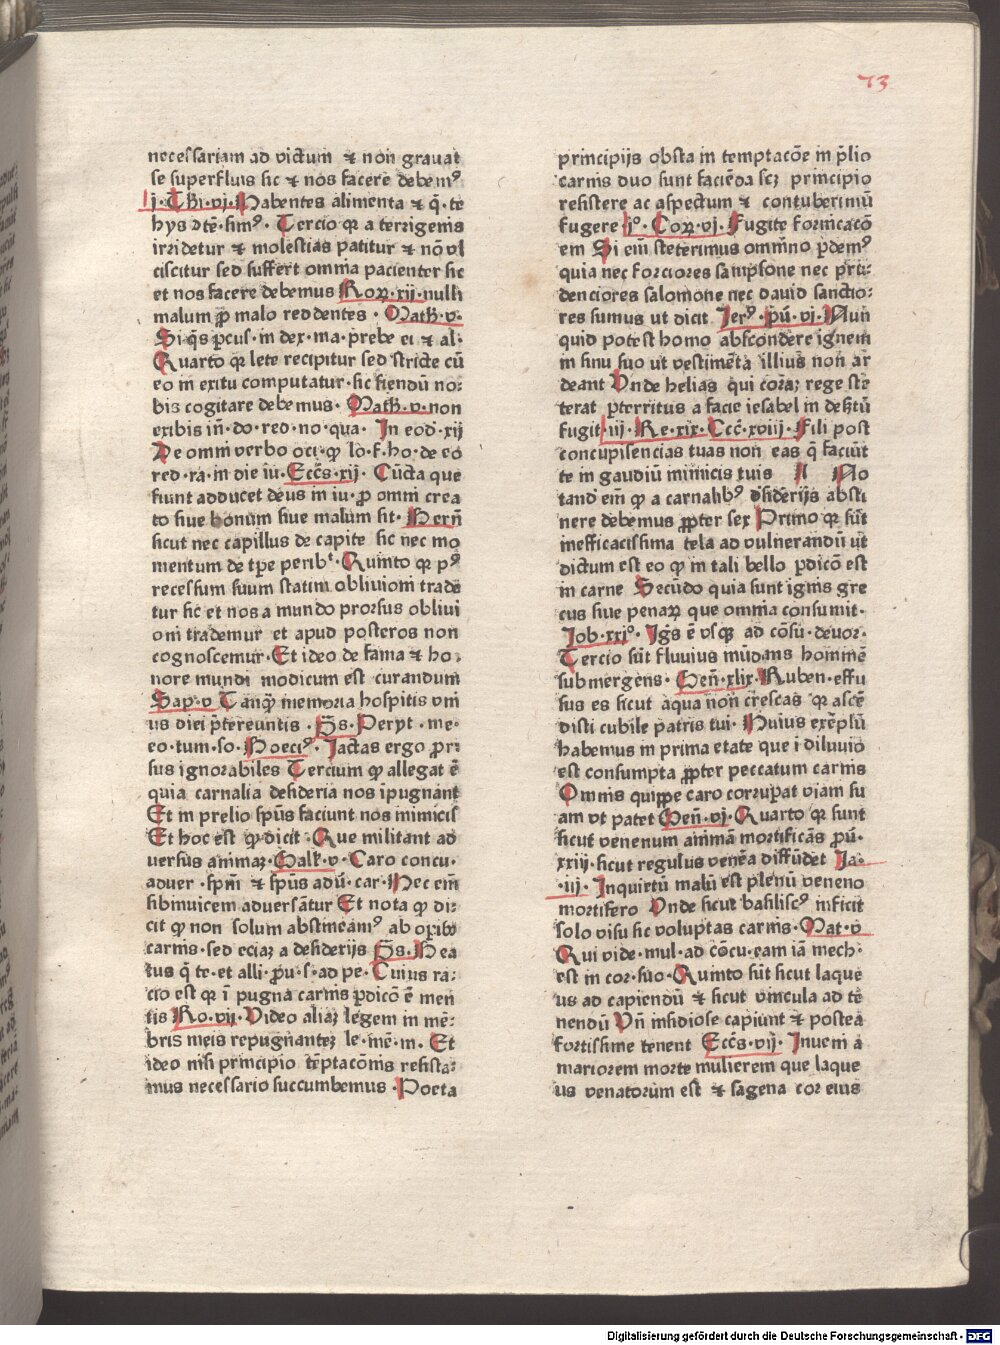 73
necessariam ad victum ⁊ non grauat
se superfluis sic ⁊ nos facere debemꝰ
j·Thi·vj·Habentes alimenta ⁊ q̄·te
hys ↄtē·simꝰ· Tercio qꝛ a terrigenis
irridetur ⁊ molestias patitur ⁊ nō vl
ciscitur sed suffert omnia pacienter sic
et nos facere debemus Roꝝ·xij·nulli
malum ꝓ malo reddentes · Math·v·
Si q̄s ꝑcus·in dex·ma·prebe ei ⁊ al·
Quarto qꝛ lete recipitur sed stricte cū
eo in exitu computatur·sic fiendū no-
bis cogitare debemus· Math·v·non
exibis iñ·do·red·no·qua· In eod·xij
De omni verbo oci·ꝙ lo·f·ho·de eo
red·ra·in die iu·Eccs̄·xij· Cūcta que
fiunt adducet deus in iu·ꝓ omni crea
to siue bonum siue malum sit· Bern̄
sicut nec capillus de capite sic nec mo
mentum de tꝑe peribᵗ·Quinto qꝛ pꝰ
recessum suum statim obliuioni trade
tur sic et nos a mundo prorsus obliui
oni trademur et apud posteros non
cognoscemur·Et ideo de fama ⁊ ho-
nore mundi modicum est curandum
Sap·v Tanq̄ memoria hospitis vni
us diei p̄tereuntis · P̄s·Peryt·me-
eo·tum·so·Boeciꝰ· Iactas ergo ꝓri-
sus ignorabiles Tercium ꝙ allegat ē
quia carnalia desideria nos īpugnant
Et in prelio spūs faciunt nos inimicis
Et hoc est ꝙ dicit ·Que militant ad
uersus animaꝫ·Galꝉ·v·Caro concu·
aduer·spm̄ ⁊ spūs adū·car·Hec em̄
sibinuicem aduersātur Et nota ꝙ di-
cit ꝙ non solum abstineamꝰ ab oꝑibꝰ
carnis·sed eciaꝫ a desiderijs P̄s·Bea
tus q̄ te·et alli·ꝑu·s·ad pe·Cuius ra-
cio est qꝛ ī pugna carnis ꝑdicō ē men
tis Ro·vij·Video aliaꝫ legem in mē-
bris meis repugnanteꝫ le·mē·m·Et
ideo nisi principio tēptacōnis resista-
mus necessario succumbemus ·Poeta
principijs obsta in temptacōe in p̄lio
carnis duo sunt facienda scꝫ principio
resistere ac aspectum ⁊ contuberniū
fugere jº·Coꝝ·vj·Fugite fornicacō
em Si em̄ steterimus omnino ꝑdemꝰ
quia nec forciores sampsone nec pru-
denciores salomone nec dauid sanctio-
res sumus ut dicit Ierꝰ·pū·vj·Nun
quid potest homo abscondere ignem
in sinu suo ut vestimēta illius non ar
deant Vnde helias qui coraꝫ rege ste
terat ꝑterritus a facie iesabel in desertū
fugit·iij·Re·xix·Eccī·xviij·Fili post
concupiscencias tuas non eas q̄ faciūt
te in gaudiū inimicis tuis No
tand em̄ ꝙ a carnalibꝰ desiderijs absti
nere debemus ꝓpter sex Primo qꝛ sūt
inefficacissima tela ad vulnerandū ut
dictum est eo ꝙ in tali bello ꝑdicō est
in carne Secūdo quia sunt ignis gre
cus siue penaꝝ que omnia consumit·
Iob·xxjº· Igs̄ ē vsqꝫ ad cōsu·deuor·
Tercio sūt fluuius mūdans hominē
submergens· Gen̄·xlix·Ruben·effu
sus es sicut aqua non crescas qꝛ ascē
disti cubile patris tui· Huius exēplū
habemus in prima etate que ī diluuio
est consumpta ꝓpter peccatum carnis
Omnis quippe caro corrupat viam su
am vt patet Gen̄·vj·Quarto qꝛ sunt
sicut venenum animā mortificās ꝓu·
xxiij·sicut regulus venēa diffūdet Ia-
·iij· Inquietū malū est plenū veneno
mortifero Vnde sicut basiliscꝰ inficit
solo visu sic voluptas carnis·Mat·v
Qui vide·mul·ad cōcu·eam iā mech·
est in cor·suo·Quinto sūt sicut laque
us ad capiendū ⁊ sicut vincula ad te
nendū Vn̄ insidiose capiunt ⁊ postea
fortissime tenent Eccs̄·vij· Inueni a
mariorem morte mulierem que laque
us venatorum est ⁊ sagena cor eius
Digitalisierung gefördert durch die Deutsche Forschungsgemeinschaft - DFG